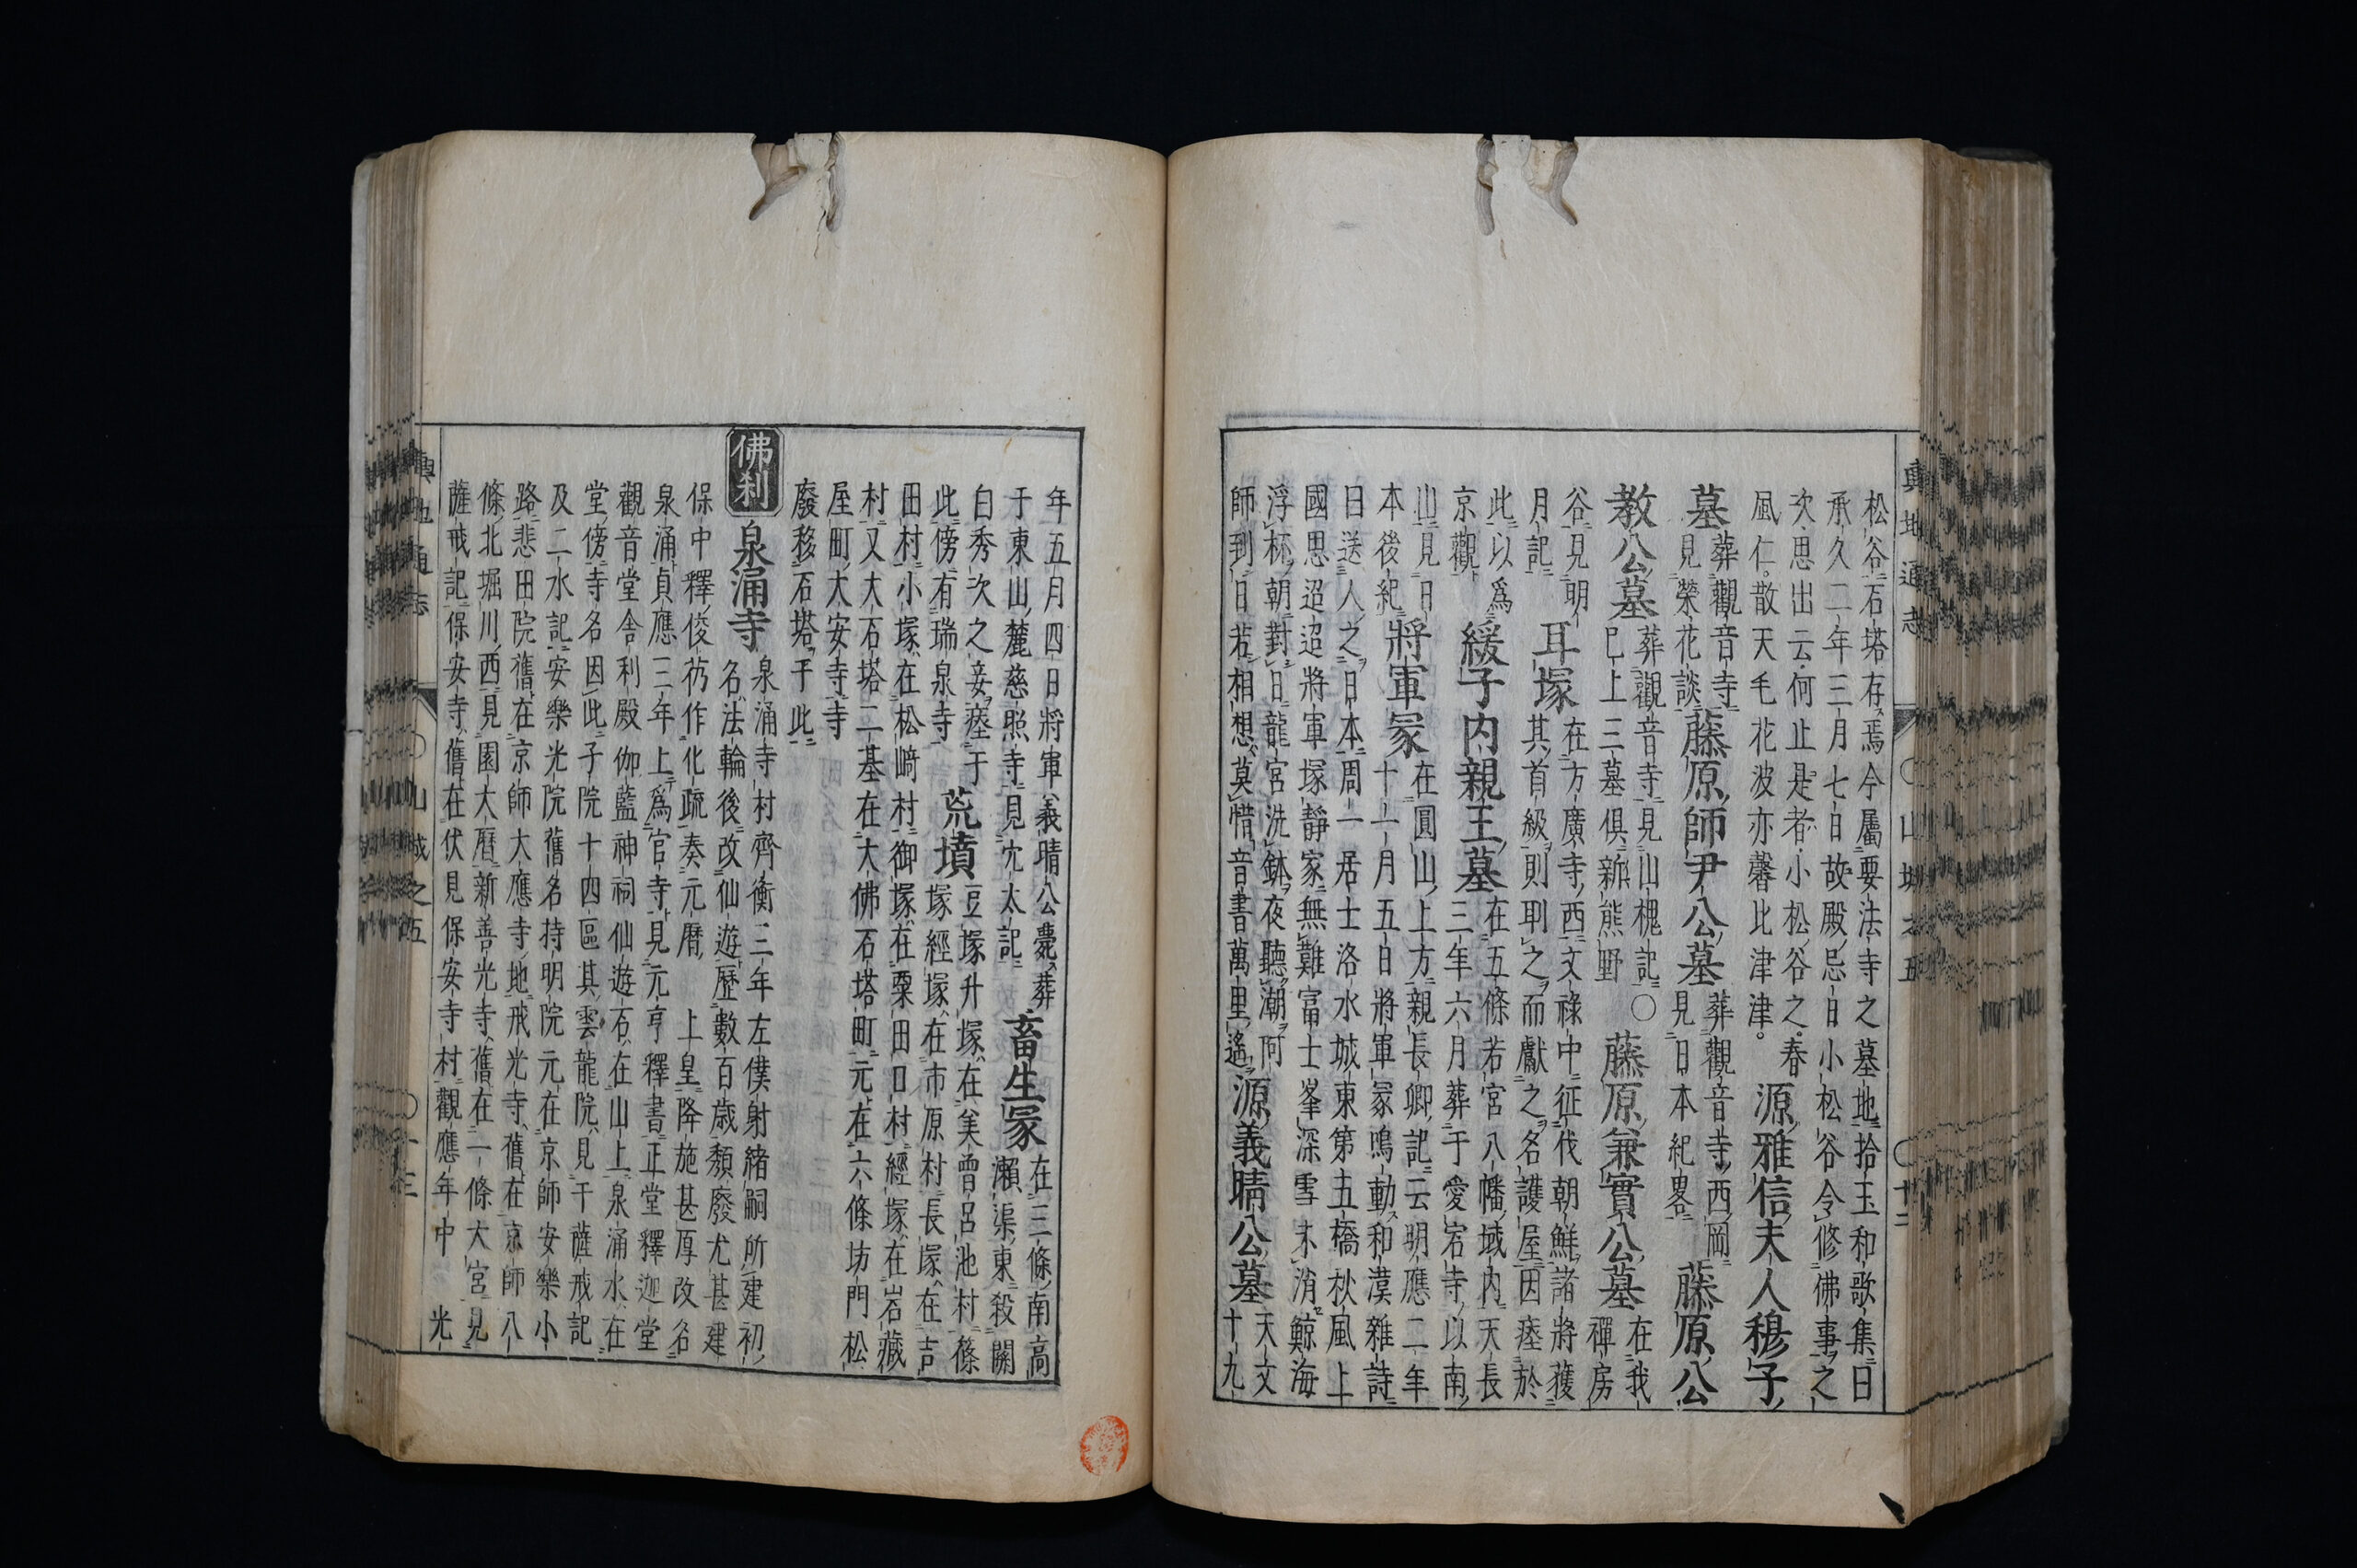 輿地通志 〇山城之五 〇十二
松谷石塔存焉今屬要法寺之墓地拾玉和歌集曰
承久二年三月七日故殿忌日小松谷令修佛事之
次思出云何止是者小松谷之春
風仁散天毛花波亦馨比津津。
源雅信夫人穆子
墓
葬觀音寺
見榮花談
藤原師尹公墓
葬觀音寺西岡
見日本紀畧
藤原公
教公墓
葬觀音寺見山槐記〇
已上三墓俱新熊野
藤原兼實公墓
在我
禪房
谷見明
月記
耳塚
在方廣寺西文祿中征伐朝鮮諸將獲
其首級則刵之而獻之名護屋因瘞於
此以爲
京觀
綏子内親王墓
在五條若宮八幡域内天長
三年六月葬于愛宕寺以南
山見日
本後紀
將軍冢
在圓山上方親長卿記云明應二年
十一月五日將軍冢鳴動和漠雜詩
日送人之日本周一居士洛水城東第五橋秋風上
國思迢迢將軍塚靜家無難富士峯深雪未消鯨海
浮杯朝對日龍宮洗鉢夜聽潮阿
師到日若相想莫惜音書萬里遙
源義晴公墓
天文
十九
年五月四日將軍義晴公薨葬
于東山麓慈照寺見宂太記
畜生冢
在三條南高
瀨渠東殺關
白秀次之妾瘞于
此傍有瑞泉寺
荒墳
豆塚升塚在美曾呂池村篠
塚經塚在市原村長塚在吉
田村小塚在松﨑村御塚在栗田口村經塚在岩藏
村又大石塔二基在大佛石塔町元在六條坊門松
屋町大安寺寺
廢移石塔于此
佛刹
泉涌寺
泉涌寺村齊衡三年左僕射緒嗣所建初
名法輪後改仙遊歷數百歳頽廢尤甚建
保中釋俊芿作化疏奏元曆 上皇降施甚厚改名
泉涌貞應三年上爲官寺見元亨釋書正堂釋迦堂
觀音堂舍利殿伽藍神祠仙遊石在山上泉涌水在
堂傍寺名因此子院十四區其雲龍院見于薩戒記
及二水記安樂光院舊名持明院元在京師安樂小
路悲田院舊在京師大應寺地戒光寺舊在京師八
條北堀川西見園大曆新善光寺舊在一條大宮見
薩戒記保安寺舊在伏見保安寺村觀應年中 光
輿地通志 〇山城之五 〇十三